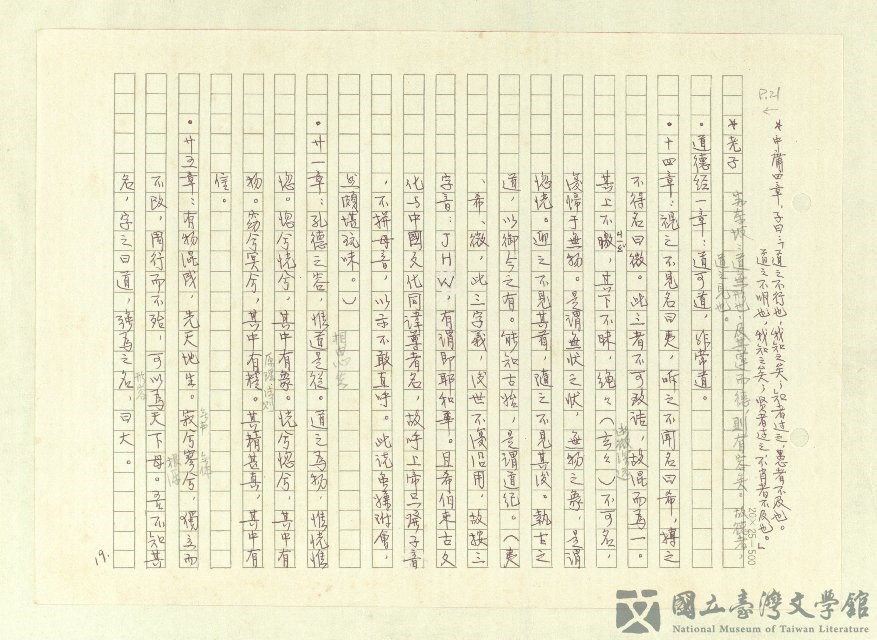 P.21
←
*中庸四章，子曰：「道之不行也，我知之矣，知者過之，愚者不及也。
道之不明也，我知之矣，賢者過之，不肖者不及也。」
20×25=500
*老子
蘇東坡：道無形也，及其運而德，則有容矣。故德者，
道之見也。
•道德經一章：道可道，非常道。
•十四章：視之不見名曰夷，聽之不聞名曰希，搏之
不得名曰微。此三者不可致詰，故混而為一。
其上不皦，其下不昧，繩々（玄々）不可名，
復歸于無物。是謂無狀之狀，無物之象，是謂
惚恍。迎之不見其首，隨之不見其後。執古之
道，以御今之有。能知古始，是謂道紀。（夷
、希、微，此三字義，後世不復沿用，故按三
字音：JHW，有謂即耶和華。且希伯來古文
化与中國文化同諱尊者名，故呼上帝只籍子音
，不拼母音，以示不敢直呼。此說雖嫌附會，
但頗堪玩味。）
•廿一章：孔德之容，惟道是從。道之為物，惟恍惟
惚。惚兮恍兮，其中有象。恍兮惚兮，其中有
物。窈兮冥兮，其中有精。其精甚真，其中有
信。
•廿五章：有物混成，先天地生。寂兮寥兮，獨立而
不改，周行而不殆，可以為天下母。吾不知其
名，字之曰道，強為之名，曰大。
19.
國立臺灣文學館
National Museum of Taiwan Literature